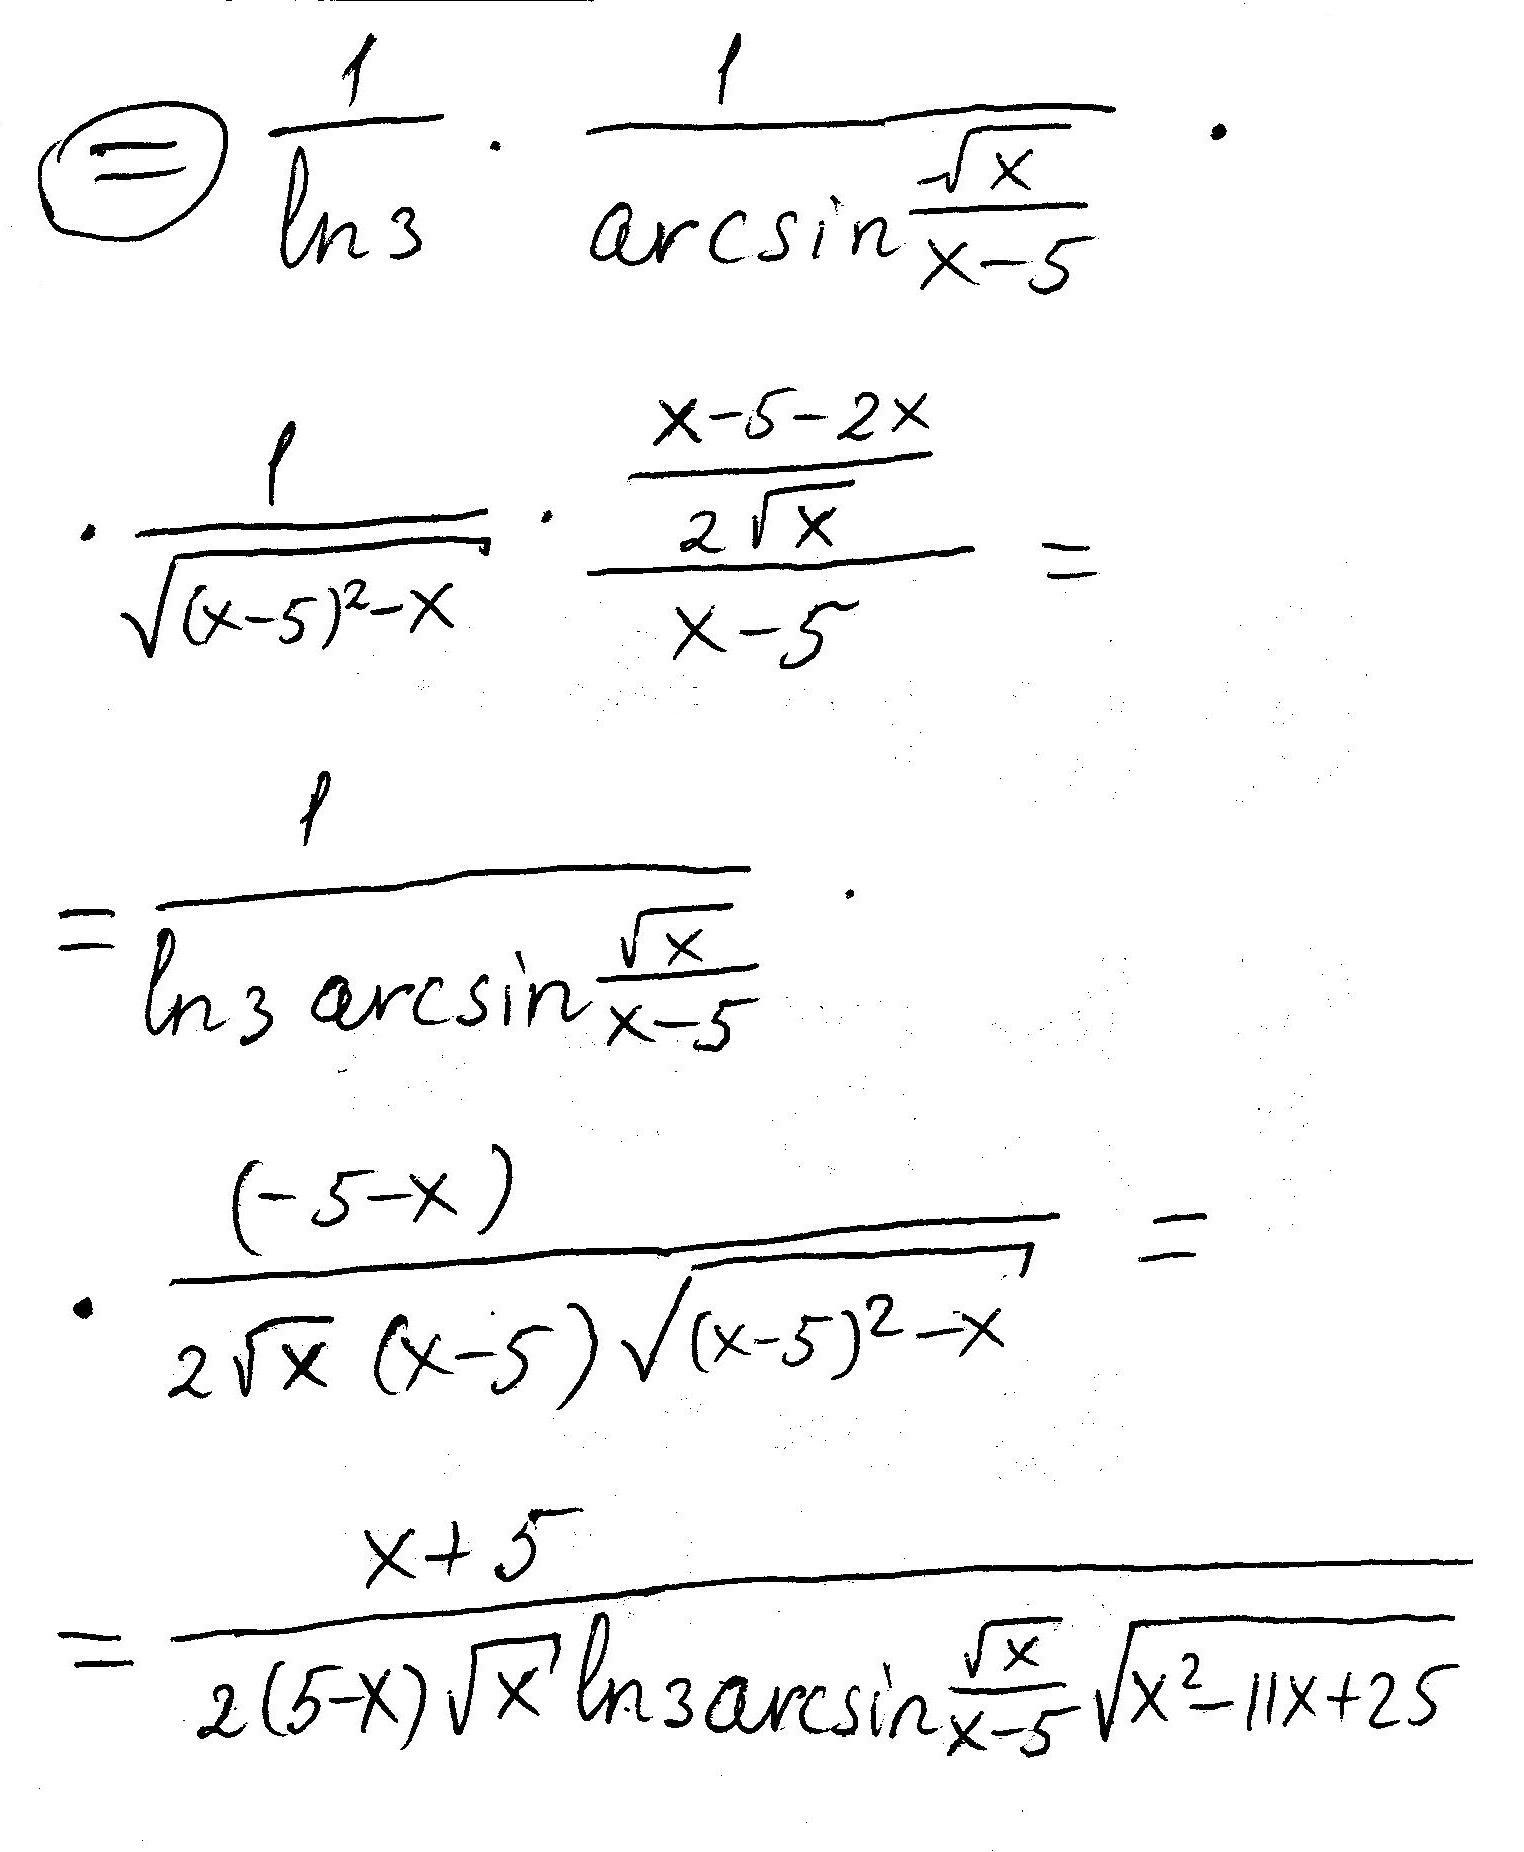 = \frac{1}{\ln 3} \cdot \frac{1}{\arcsin \frac{\sqrt{x}}{x-5}} \cdot
\cdot \frac{1}{\sqrt{(x-5)^2-x}} \cdot \frac{\frac{x-5-2x}{2\sqrt{x}}}{x-5} =
= \frac{1}{\ln 3 \arcsin \frac{\sqrt{x}}{x-5}} \cdot
\cdot \frac{(-5-x)}{2\sqrt{x}(x-5)\sqrt{(x-5)^2-x}} =
= \frac{x+5}{2(5-x)\sqrt{x} \ln 3 \arcsin \frac{\sqrt{x}}{x-5} \sqrt{x^2-11x+25}}